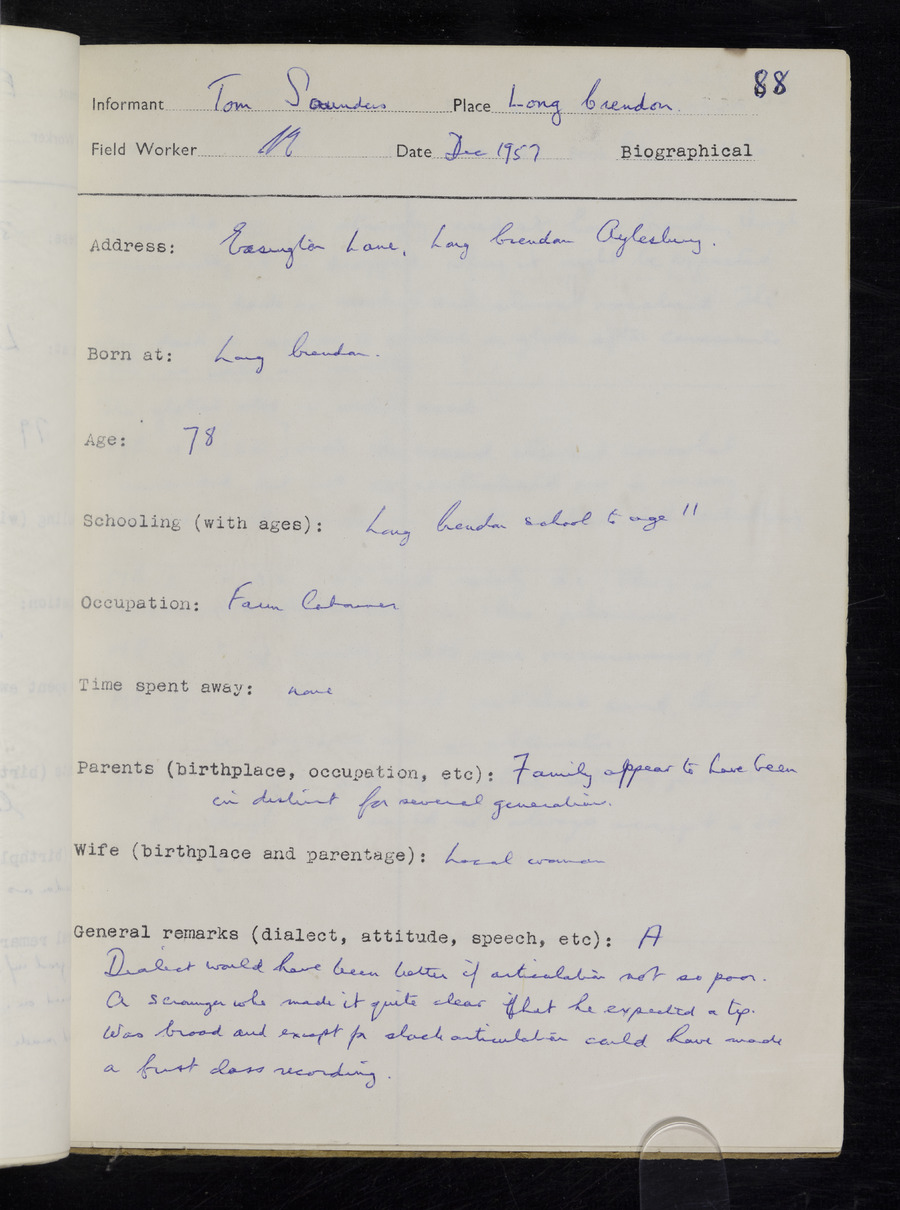 88
Informant Tom Saunders Place Long Crendon.
Field Worker Date Dec 1957 Biographical
Address: Easington Lane, Long Crendon Aylesbury.
Born at: Long Crendon.
Age: 78
Schooling (with ages): Long Crendon school to age 11
Occupation: Farm Labourer
Time spent away: none
Parents (birthplace, occupation, etc): Family appear to have been
in district for several generations.
Wife (birthplace and parentage): Local woman
General remarks (dialect, attitude, speech, etc): A
Dialect would have been better if articulation not so poor.
A scrounger who made it quite clear that he expected a tip.
Was broad and except for slack articulation could have made
a first class recording.